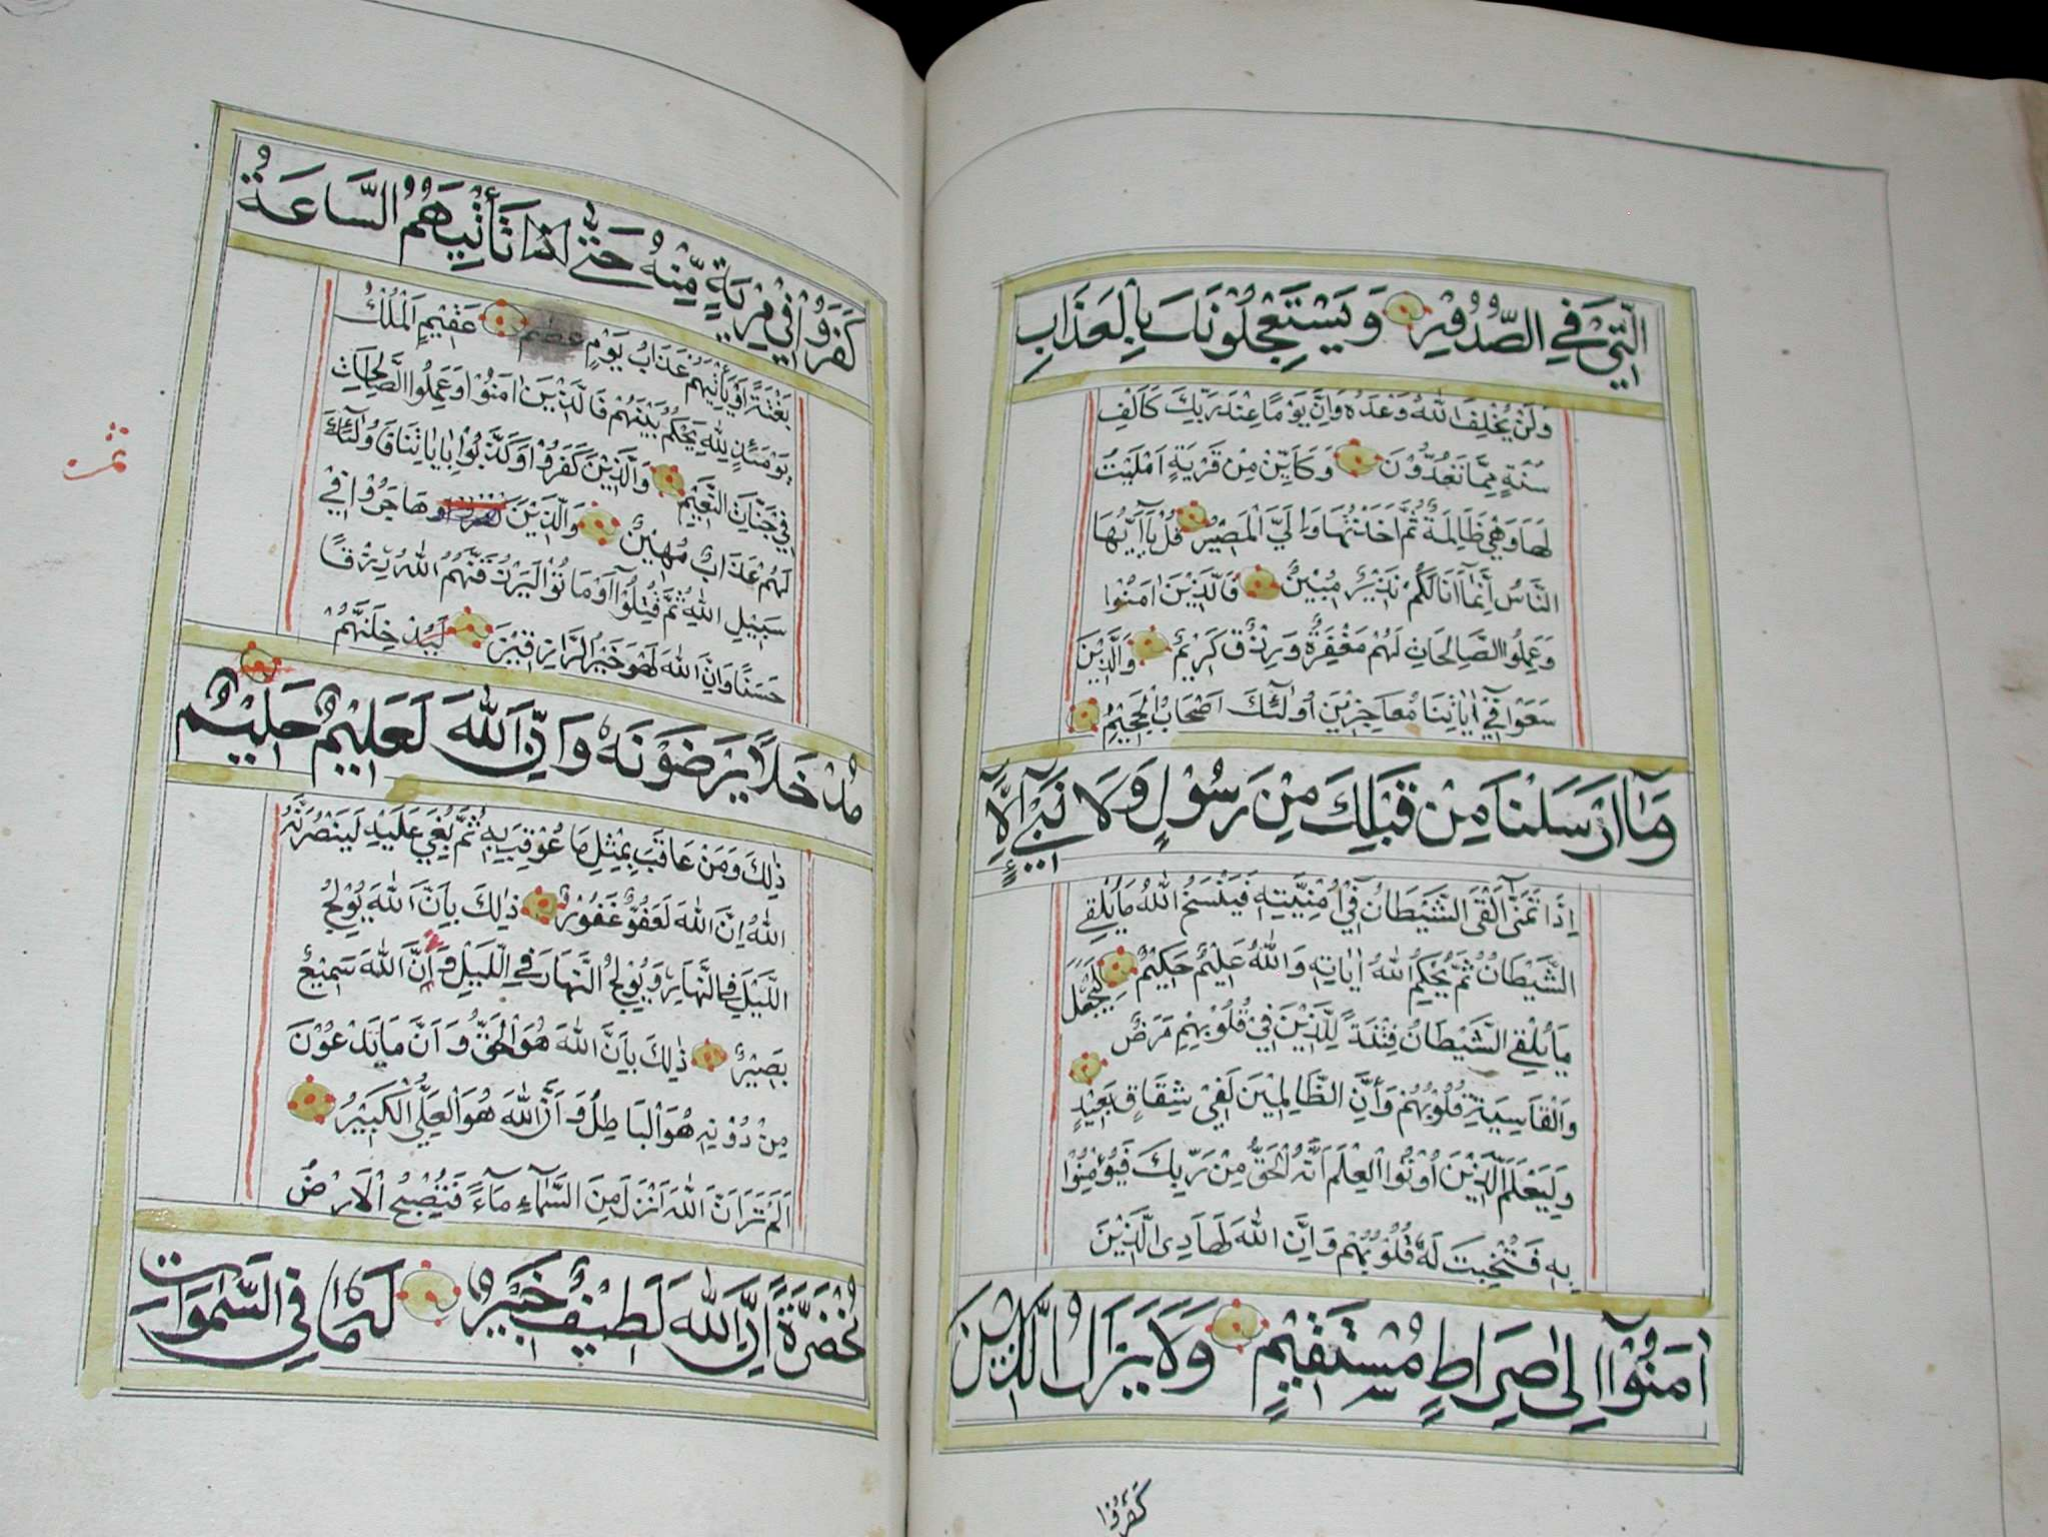 الَّتِيْ فِي الصُّدُوْرِ وَيَسْتَعْجِلُوْنَكَ بِالْعَذَابِ
وَلَنْ يُخْلِفَ اللّٰهُ وَعْدَهُ وَاِنَّ يَوْمًا عِنْدَ رَبِّكَ كَاَلْفِ
سَنَةٍ مِمَّا تَعُدُّوْنَ وَكَاَيِّنْ مِنْ قَرْيَةٍ اَمْلَيْتُ
لَهَا وَهِيَ ظَالِمَةٌ ثُمَّ اَخَذْتُهَا وَاِلَيَّ الْمَصِيْرُ قُلْ يَآ اَيُّهَا
النَّاسُ اِنَّمَآ اَنَا لَكُمْ نَذِيْرٌ مُبِيْنٌ فَالَّذِيْنَ اٰمَنُوْا
وَعَمِلُوا الصَّالِحَاتِ لَهُمْ مَغْفِرَةٌ وَرِزْقٌ كَرِيْمٌ وَالَّذِيْنَ
سَعَوْا فِيْٓ اٰيَاتِنَا مُعَاجِزِيْنَ اُولٰٓئِكَ اَصْحَابُ الْجَحِيْمِ
وَمَآ اَرْسَلْنَا مِنْ قَبْلِكَ مِنْ رَسُوْلٍ وَلَا نَبِيٍّ اِلَّآ
اِذَا تَمَنّٰٓى اَلْقَى الشَّيْطَانُ فِيْٓ اُمْنِيَّتِهِ فَيَنْسَخُ اللّٰهُ مَا يُلْقِي
الشَّيْطَانُ ثُمَّ يُحْكِمُ اللّٰهُ اٰيَاتِهِ وَاللّٰهُ عَلِيْمٌ حَكِيْمٌ لِيَجْعَلَ
مَا يُلْقِي الشَّيْطَانُ فِتْنَةً لِلَّذِيْنَ فِيْ قُلُوْبِهِمْ مَرَضٌ
وَالْقَاسِيَةِ قُلُوْبُهُمْ وَاِنَّ الظَّالِمِيْنَ لَفِيْ شِقَاقٍ بَعِيْدٍ
وَلِيَعْلَمَ الَّذِيْنَ اُوْتُوا الْعِلْمَ اَنَّهُ الْحَقُّ مِنْ رَبِّكَ فَيُؤْمِنُوْا
بِهِ فَتُخْبِتَ لَهُ قُلُوْبُهُمْ وَاِنَّ اللّٰهَ لَهَادِى الَّذِيْنَ
اٰمَنُوْٓا اِلٰى صِرَاطٍ مُسْتَقِيْمٍ وَلَا يَزَالُ الَّذِيْنَ
كَفَرُوْا
كَفَرُوْا فِيْ مِرْيَةٍ مِنْهُ حَتّٰى اِذَا تَأْتِيَهُمُ السَّاعَةُ
بَغْتَةً اَوْ يَأْتِيَهُمْ عَذَابُ يَوْمٍ عَقِيْمٍ اَلْمُلْكُ
يَوْمَئِذٍ لِلّٰهِ يَحْكُمُ بَيْنَهُمْ فَالَّذِيْنَ اٰمَنُوْا وَعَمِلُوا الصَّالِحَاتِ
فِيْ جَنَّاتِ النَّعِيْمِ وَالَّذِيْنَ كَفَرُوْا وَكَذَّبُوْا بِاٰيَاتِنَا فَاُولٰٓئِكَ
لَهُمْ عَذَابٌ مُهِيْنٌ وَالَّذِيْنَ هَاجَرُوْا فِيْ
سَبِيْلِ اللّٰهِ ثُمَّ قُتِلُوْٓا اَوْ مَاتُوْا لَيَرْزُقَنَّهُمُ اللّٰهُ رِزْقًا
حَسَنًا وَاِنَّ اللّٰهَ لَهُوَ خَيْرُ الرَّازِقِيْنَ لَيُدْخِلَنَّهُمْ
مُدْخَلًا يَرْضَوْنَهُ وَاِنَّ اللّٰهَ لَعَلِيْمٌ حَلِيْمٌ
ذٰلِكَ وَمَنْ عَاقَبَ بِمِثْلِ مَا عُوْقِبَ بِهِ ثُمَّ بُغِيَ عَلَيْهِ لَيَنْصُرَنَّهُ
اللّٰهُ اِنَّ اللّٰهَ لَعَفُوٌّ غَفُوْرٌ ذٰلِكَ بِاَنَّ اللّٰهَ يُوْلِجُ
اللَّيْلَ فِي النَّهَارِ وَيُوْلِجُ النَّهَارَ فِي اللَّيْلِ وَاَنَّ اللّٰهَ سَمِيْعٌ
بَصِيْرٌ ذٰلِكَ بِاَنَّ اللّٰهَ هُوَ الْحَقُّ وَاَنَّ مَا يَدْعُوْنَ
مِنْ دُوْنِهِ هُوَ الْبَاطِلُ وَاَنَّ اللّٰهَ هُوَ الْعَلِيُّ الْكَبِيْرُ
اَلَمْ تَرَ اَنَّ اللّٰهَ اَنْزَلَ مِنَ السَّمَآءِ مَآءً فَتُصْبِحُ الْاَرْضُ
مُخْضَرَّةً اِنَّ اللّٰهَ لَطِيْفٌ خَبِيْرٌ لَهُ مَا فِي السَّمٰوَاتِ
ثمن